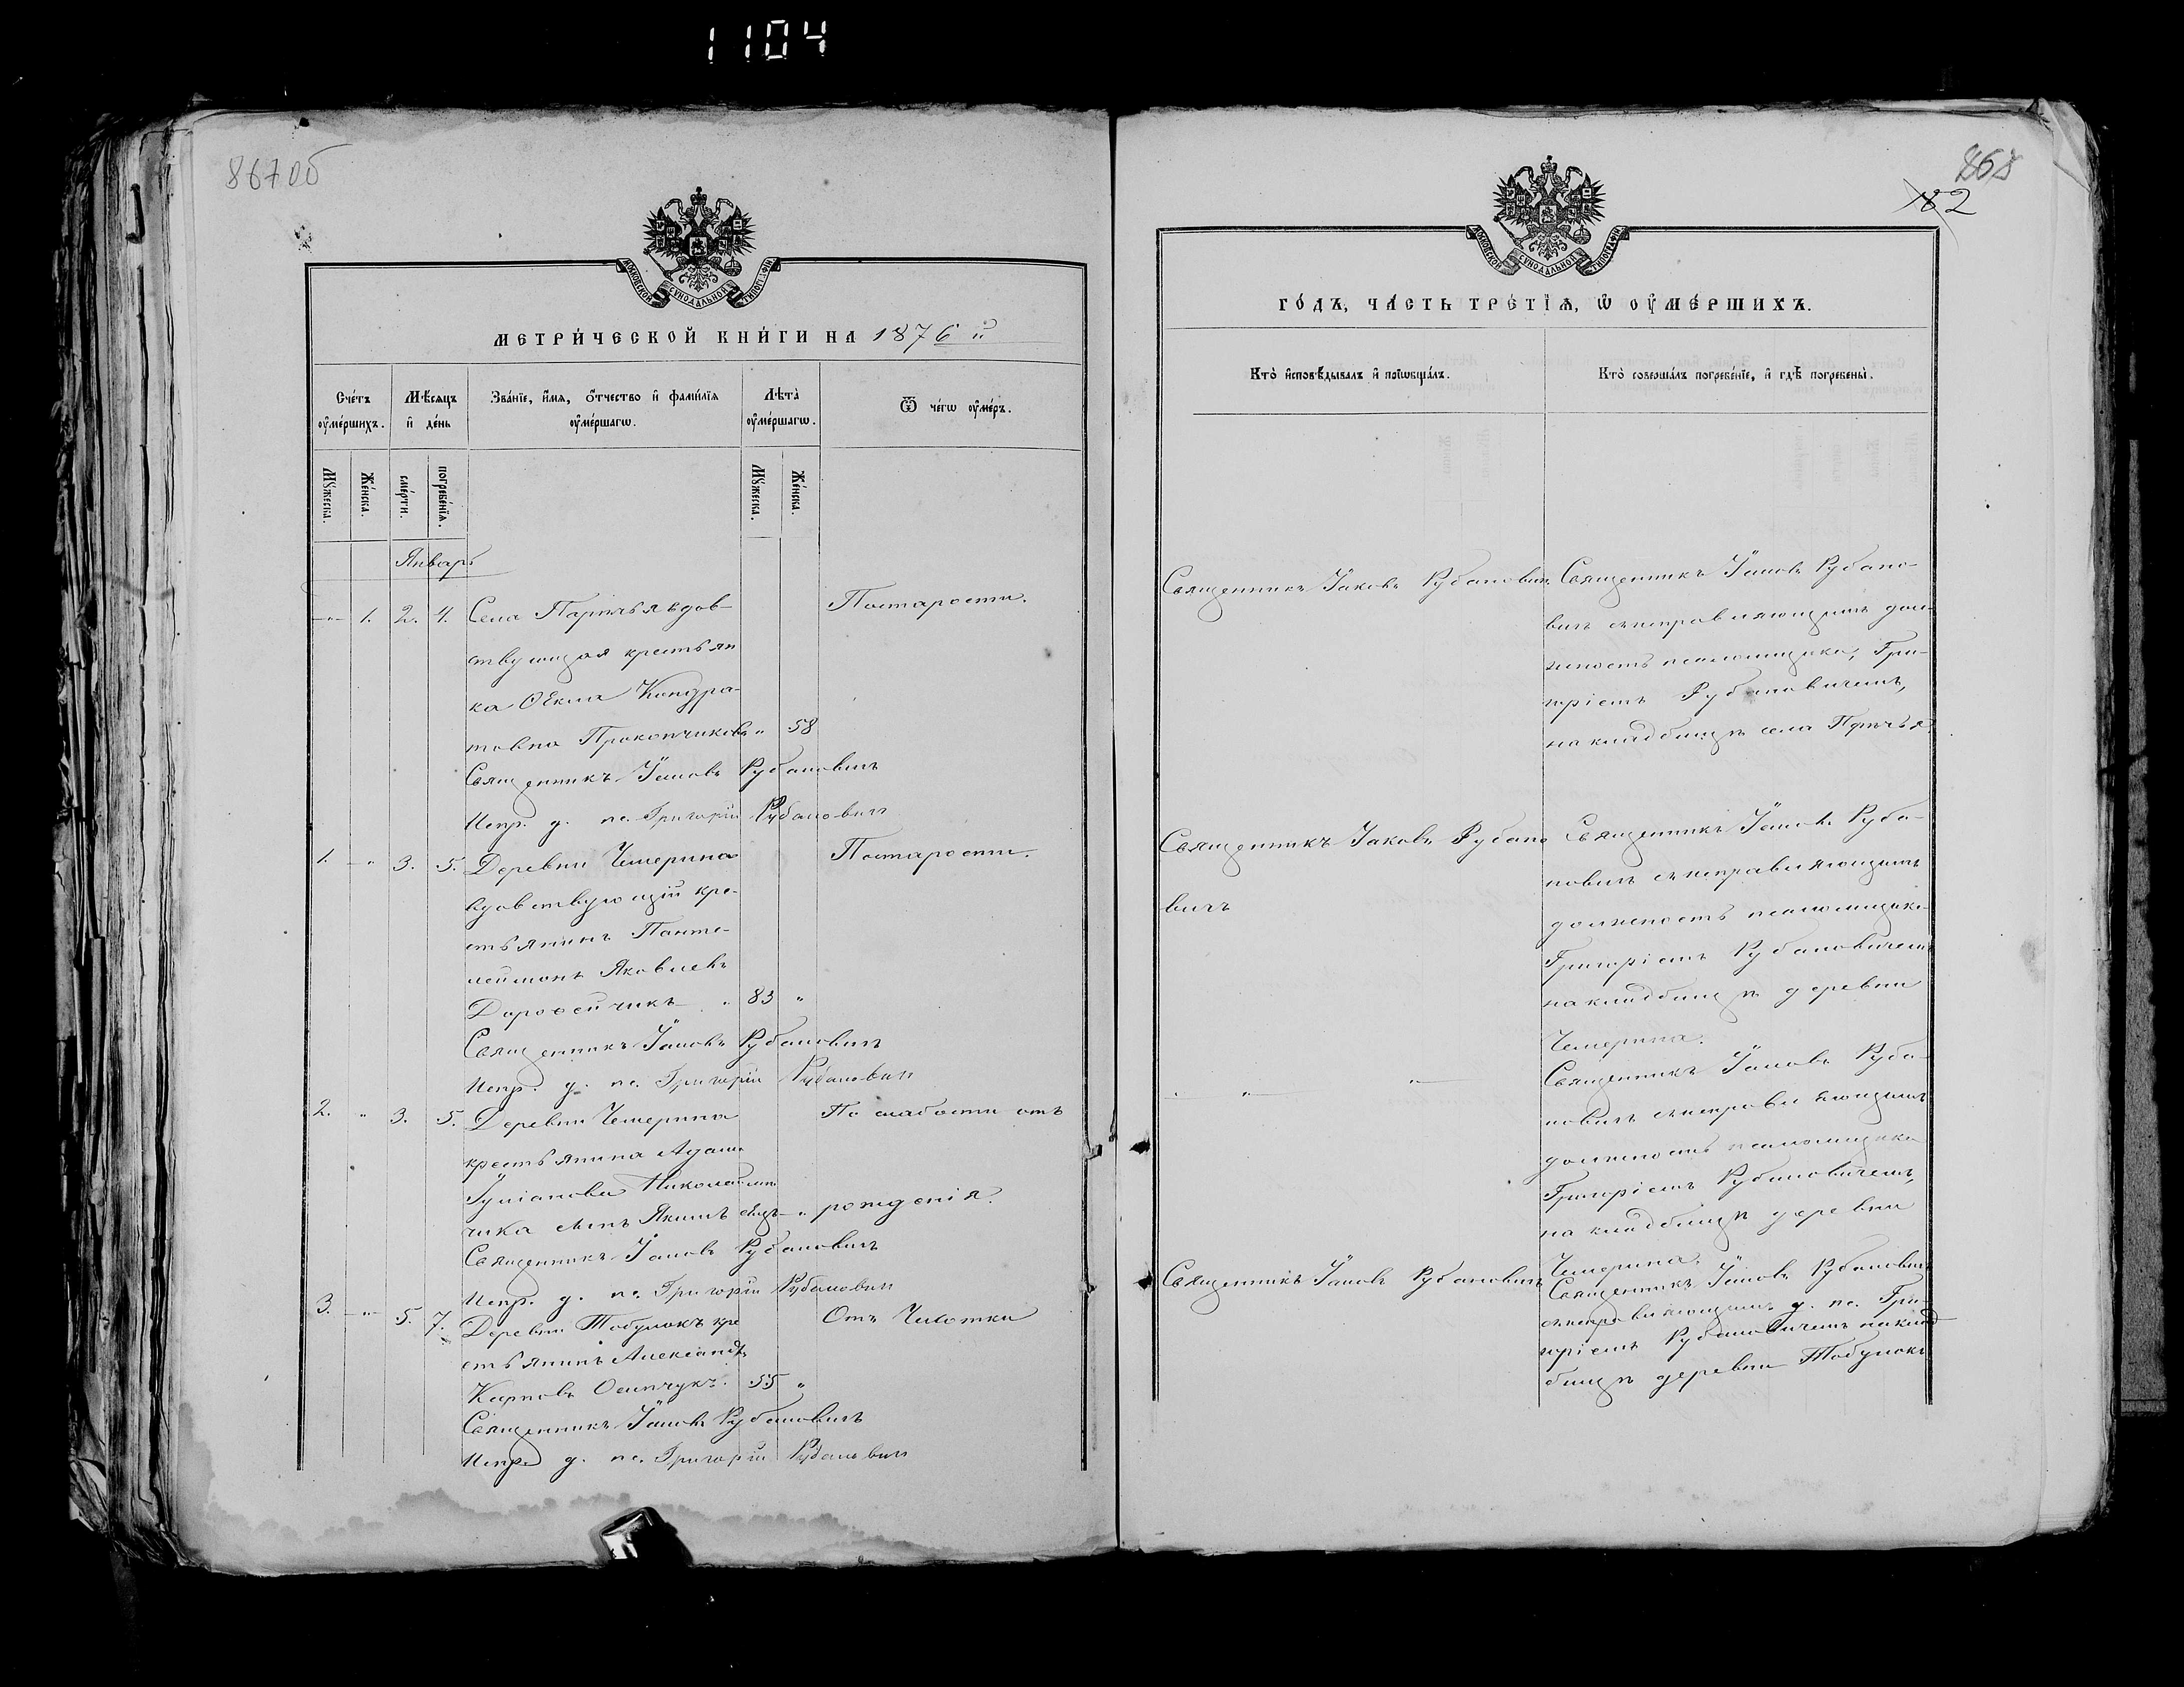 1104
867об
МОСКОВСКОЙ СѴНОДАЛЬНОЙ ТИПОГРАФІИ
МЕТРИ́ЧЕСКОЙ КНИ́ГИ НА 1876 й
Сче́тъ ᲂу҆ме́ршихъ.
Мѣ́сяцъ и҆ де́нь
Зва́нїе, и҆́мя, ѻ҆́тчество и҆ фами́лїя ᲂу҆ме́ршагѡ.
Лѣта̀ ᲂу҆ме́ршагѡ.
Ѿ чегѡ̀ ᲂу҆ме́ръ.
Мꙋжеска.
Же́нска.
сме́рти.
погребе́нїя.
Мꙋжеска.
Же́нска.
Январь
-„- 1. 2. 4. Села вдов- Постарости.
ствующая крестьян
ка Ѳекла Кондра-
товна Прокопчикова „ 58
Священникъ Іаковъ Рубановичъ
Испр. д. пс. Григорій Рубановичъ
1. -„ 3. 5. Деревни Чемерина Постарости.
вдовствующій кре-
стьянинъ Панте-
леймонъ Яковлевъ
Дороѳейчикъ 83 „
Священникъ Іаковъ Рубановичъ
Испр. д. пс. Григорій Рубановичъ
2. „ 3. 5. Деревни Чемерина По слабости отъ
крестьянина Адама
Николай
чика сынъ Якимъ „ рожденія.
Священникъ Іаковъ Рубановичъ
Испр. д. пс. Григорій Рубановичъ
3. -„- 5. 7. Деревни Тобулокъ кре Отъ Чахотки
стьянинъ Александръ
Карповъ Осипчукъ. 55 „
Священникъ Іаковъ Рубановичъ
Испр. д. пс. Григорій Рубановичъ
868
182
МОСКОВСКОЙ СѴНОДАЛЬНОЙ ТИПОГРАФІИ
ГО́ДЪ, ЧА́СТЬ ТРЕ́ТЇѦ, Ѡ҆ ОУ҆МЕ́РШИХЪ.
Кто̀ и҆сповѣ́дывалъ и҆ прїѡбща́лъ.
Кто̀ соверша́лъ погребе́нїе, и҆ гдѣ̀ погребены̀.
Священникъ Іаковъ Рубановичъ
Священникъ Іаковъ Рубано-
вичъ съ исправляющимъ дол-
жность псаломщика, Гри-
горіемъ Рубановичемъ,
на кладбищѣ села
Священникъ Іаковъ Рубано
вичъ
Священникъ Іаковъ Руба-
новичъ съ исправляющимъ
должность псаломщика
Григоріемъ Рубановичемъ
на кладбищѣ деревни
Чемерина.
„ „ „
Священникъ Іаковъ Руба-
новичъ съ исправляющимъ
должность псаломщика
Григоріемъ Рубановичемъ,
на кладбищѣ деревни
Чемерина.
Священникъ Іаковъ Рубановичъ
Священникъ Іаковъ Рубановичъ
съ исправляющимъ д. пс. Гри-
горіемъ Рубановичемъ на клад-
бищѣ деревни Тобулокъ